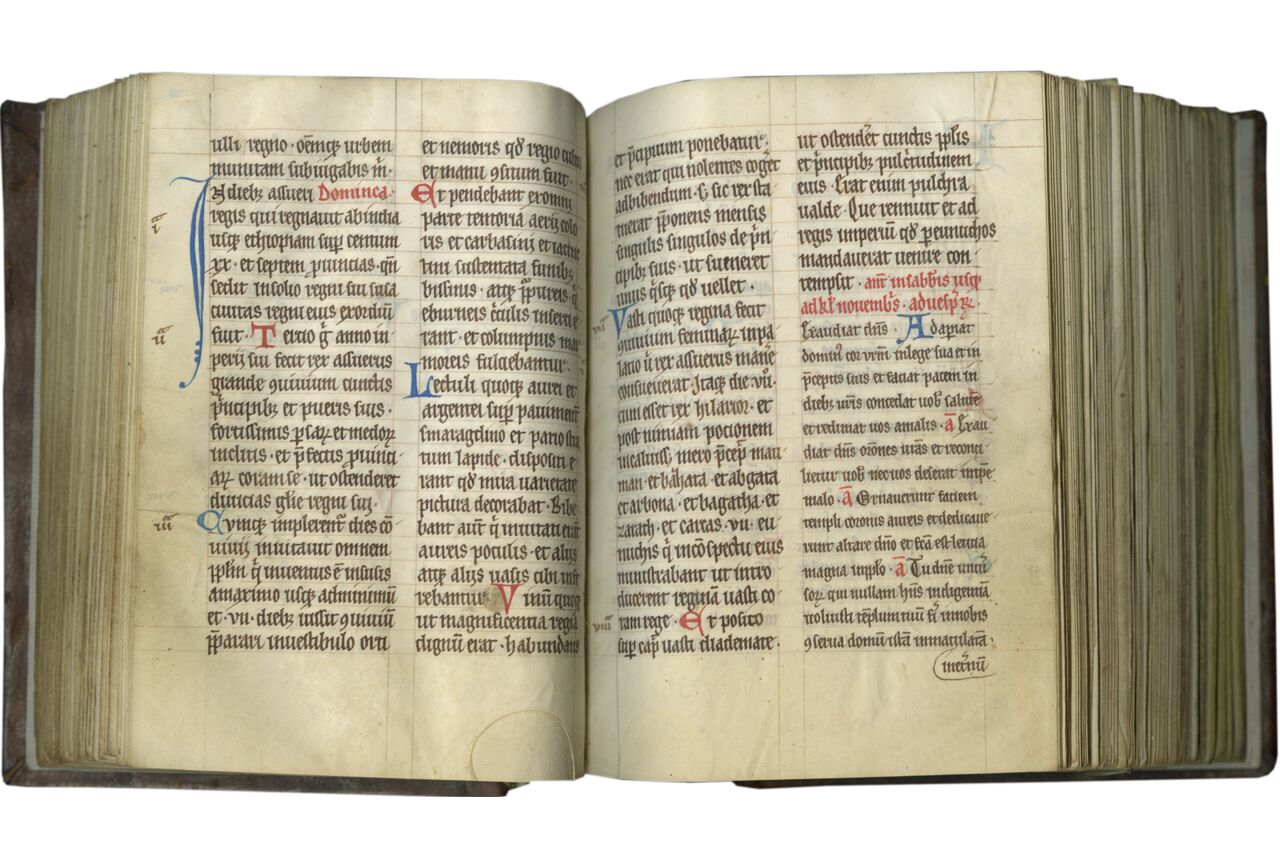 illi regno · oēmqꝫ urbem
munitam subiugabis m̄ ·
In diebꝫ assueri Dominica ·
regis qui regnauit ab india
usqꝫ ethiopiam suꝑ centum
xx · et septem ꝓuincias · qn̄
sedit in solio regni sui susa
ciuitas regni eius exordiū
fuit · Tercio g̊ anno im
perii sui fecit rex assuerus
grande ꝯuiuium cunctis
p̄ncipibꝫ et pueris suis ·
fortissimis ꝑsaꝝ et medoꝝ
inclitis · et p̄fectis ꝓuinci
aꝝ coram se · ut ostenderet
diuicias gl̄ie regni sui ·
Cumqꝫ implerent̄ dies cō
uiuii inuitauit omnem
pp̄lm q̇ inuentus ē in susis
a maximo usqꝫ ad minimū
et · vii · diebꝫ iussit ꝯuiuiū
p̄parari in uestibulo orti
et nemoris qd̄ regio cultu
et manu ꝯsitum fuit ·
Et pendebant ex omni
parte tentoria aerii colo
ris et carbasini et iacinc
tini sustentata funibꝫ
bissinis · atqꝫ purpureis · q̇
eburneis c̄culis inserti e
rant · et columpnis mar
moreis fulciebantur ·
Lectuli quoqꝫ aurei et
argentei suꝑ pauiment̄
smaragdino et pario stra
tum lapide · dispositi e
rant qd̄ mira uarietate
pictura decorabat · Bibe
bant aut̄ q̇ inuitati erant
aureis poculis · et aliis
atqꝫ aliis uasis cibi infe
rebantur · Vinū quoqꝫ
ut magnificentia regia
dignū erat · habundans
et p̄cipuum ponebatur ·
nec erat qui nolentes coḡet
ad bibendum · sꝫ sic rex sta
tuerat p̄ponens mensis
singulis singulos de p̄n
cipibꝫ suis · ut sumeret
unus qˢqꝫ qd̄ uellet ·
Vasti quoqꝫ regina fecit
ꝯuiuium feminaꝝ in pa
lacio ů rex assuerus manē
consueuerat · Itaqꝫ die · viiͦ ·
cum esset rex hilarior · et
post nimiam potionem
incaluiss̄ mero p̄ceꝑ mau
man · et bazata · et abgata
et arbona · et bagatha · et
zarath · et carcas · vii · eu
nuchis q̇ in cōspectu eius
ministrabant ut intro
ducerent reginā uasti co
ram rege · Et posito
suꝑ cap̄ uasti diademate ·
ut ostenderet cunctis pp̄lis
et p̄ncipibꝫ pulc̄tudinem
eius · Erat enim pulchra
ualde · Que rennuit et ad
regis imperiū qd̄ ꝑ eunuchos
mandauerat uenire con
tempsit · an̄t in sabbīs usqꝫ
ad kl̄ nouembr̄s · ad uesp̄ ℟
Exaudiat dn̄s · Adaperiat
dominꝰ cor vr̄m in lege sua et in
p̄ceptis suis et faciat pacem in
diebꝫ ur̄is concedat uob̄ salutē
et redimat uos a malis · ā Exau
diat dn̄s orōnes ur̄as et reconci
lietur uob̄ nec uos deserat in tpē
malo · ā Ornauerunt faciem
templi coronis aureis et dedicaue
runt altare dn̄o et fc̄a est leticia
magna in pp̄lo · ā Tu dn̄e uniū
soꝝ qui nullam hn̄s indigentiā
uoluisti templum tuū fi̇ in nobis
ꝯserua domū istā inmaculatā ·
in et̄nū